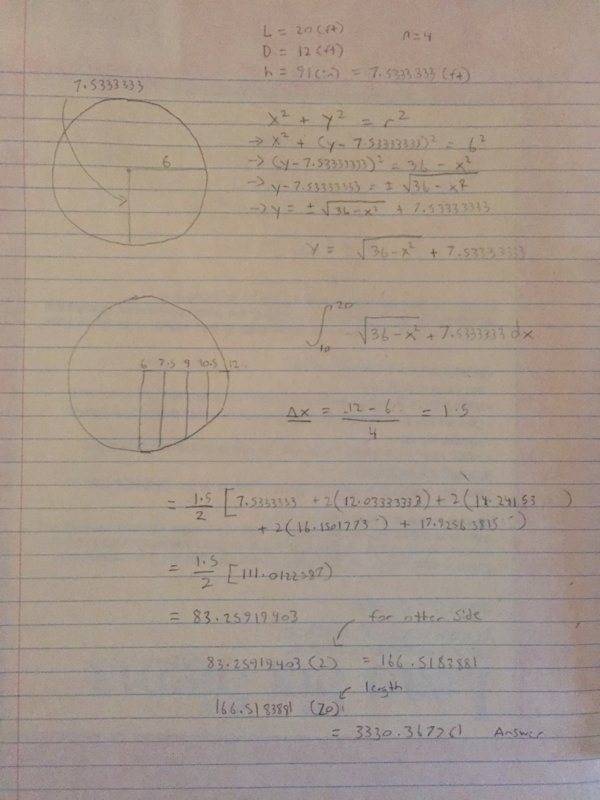 L = 20 (ft)
n=4
D = 12 (ft)
h = 91 (in) = 7.5333333 (ft)
7.5333333
6
x² + y² = r²
→ x² + (y - 7.53333333)² = 6²
→ (y - 7.53333333)² = 36 - x²
→ y - 7.53333333 = ± √36 - x²
→ y = ± √36 - x² + 7.53333333
y = √36 - x² + 7.5333333
∫₁₀²⁰ √36 - x² + 7.5333333 dx
6 7.5 9 10.5 12
Δx = 12 - 6 / 4 = 1.5
= 1.5/2 [7.5333333 + 2(12.03333333) + 2(14.24153 )
+ 2(16.1501773 ) + 17.92563815 )
= 1.5/2 [111.0122587)
= 83.25919403
for other side
83.25919403 (2) = 166.5183881
length
166.5183881 (20)
= 3330.367761 Answer